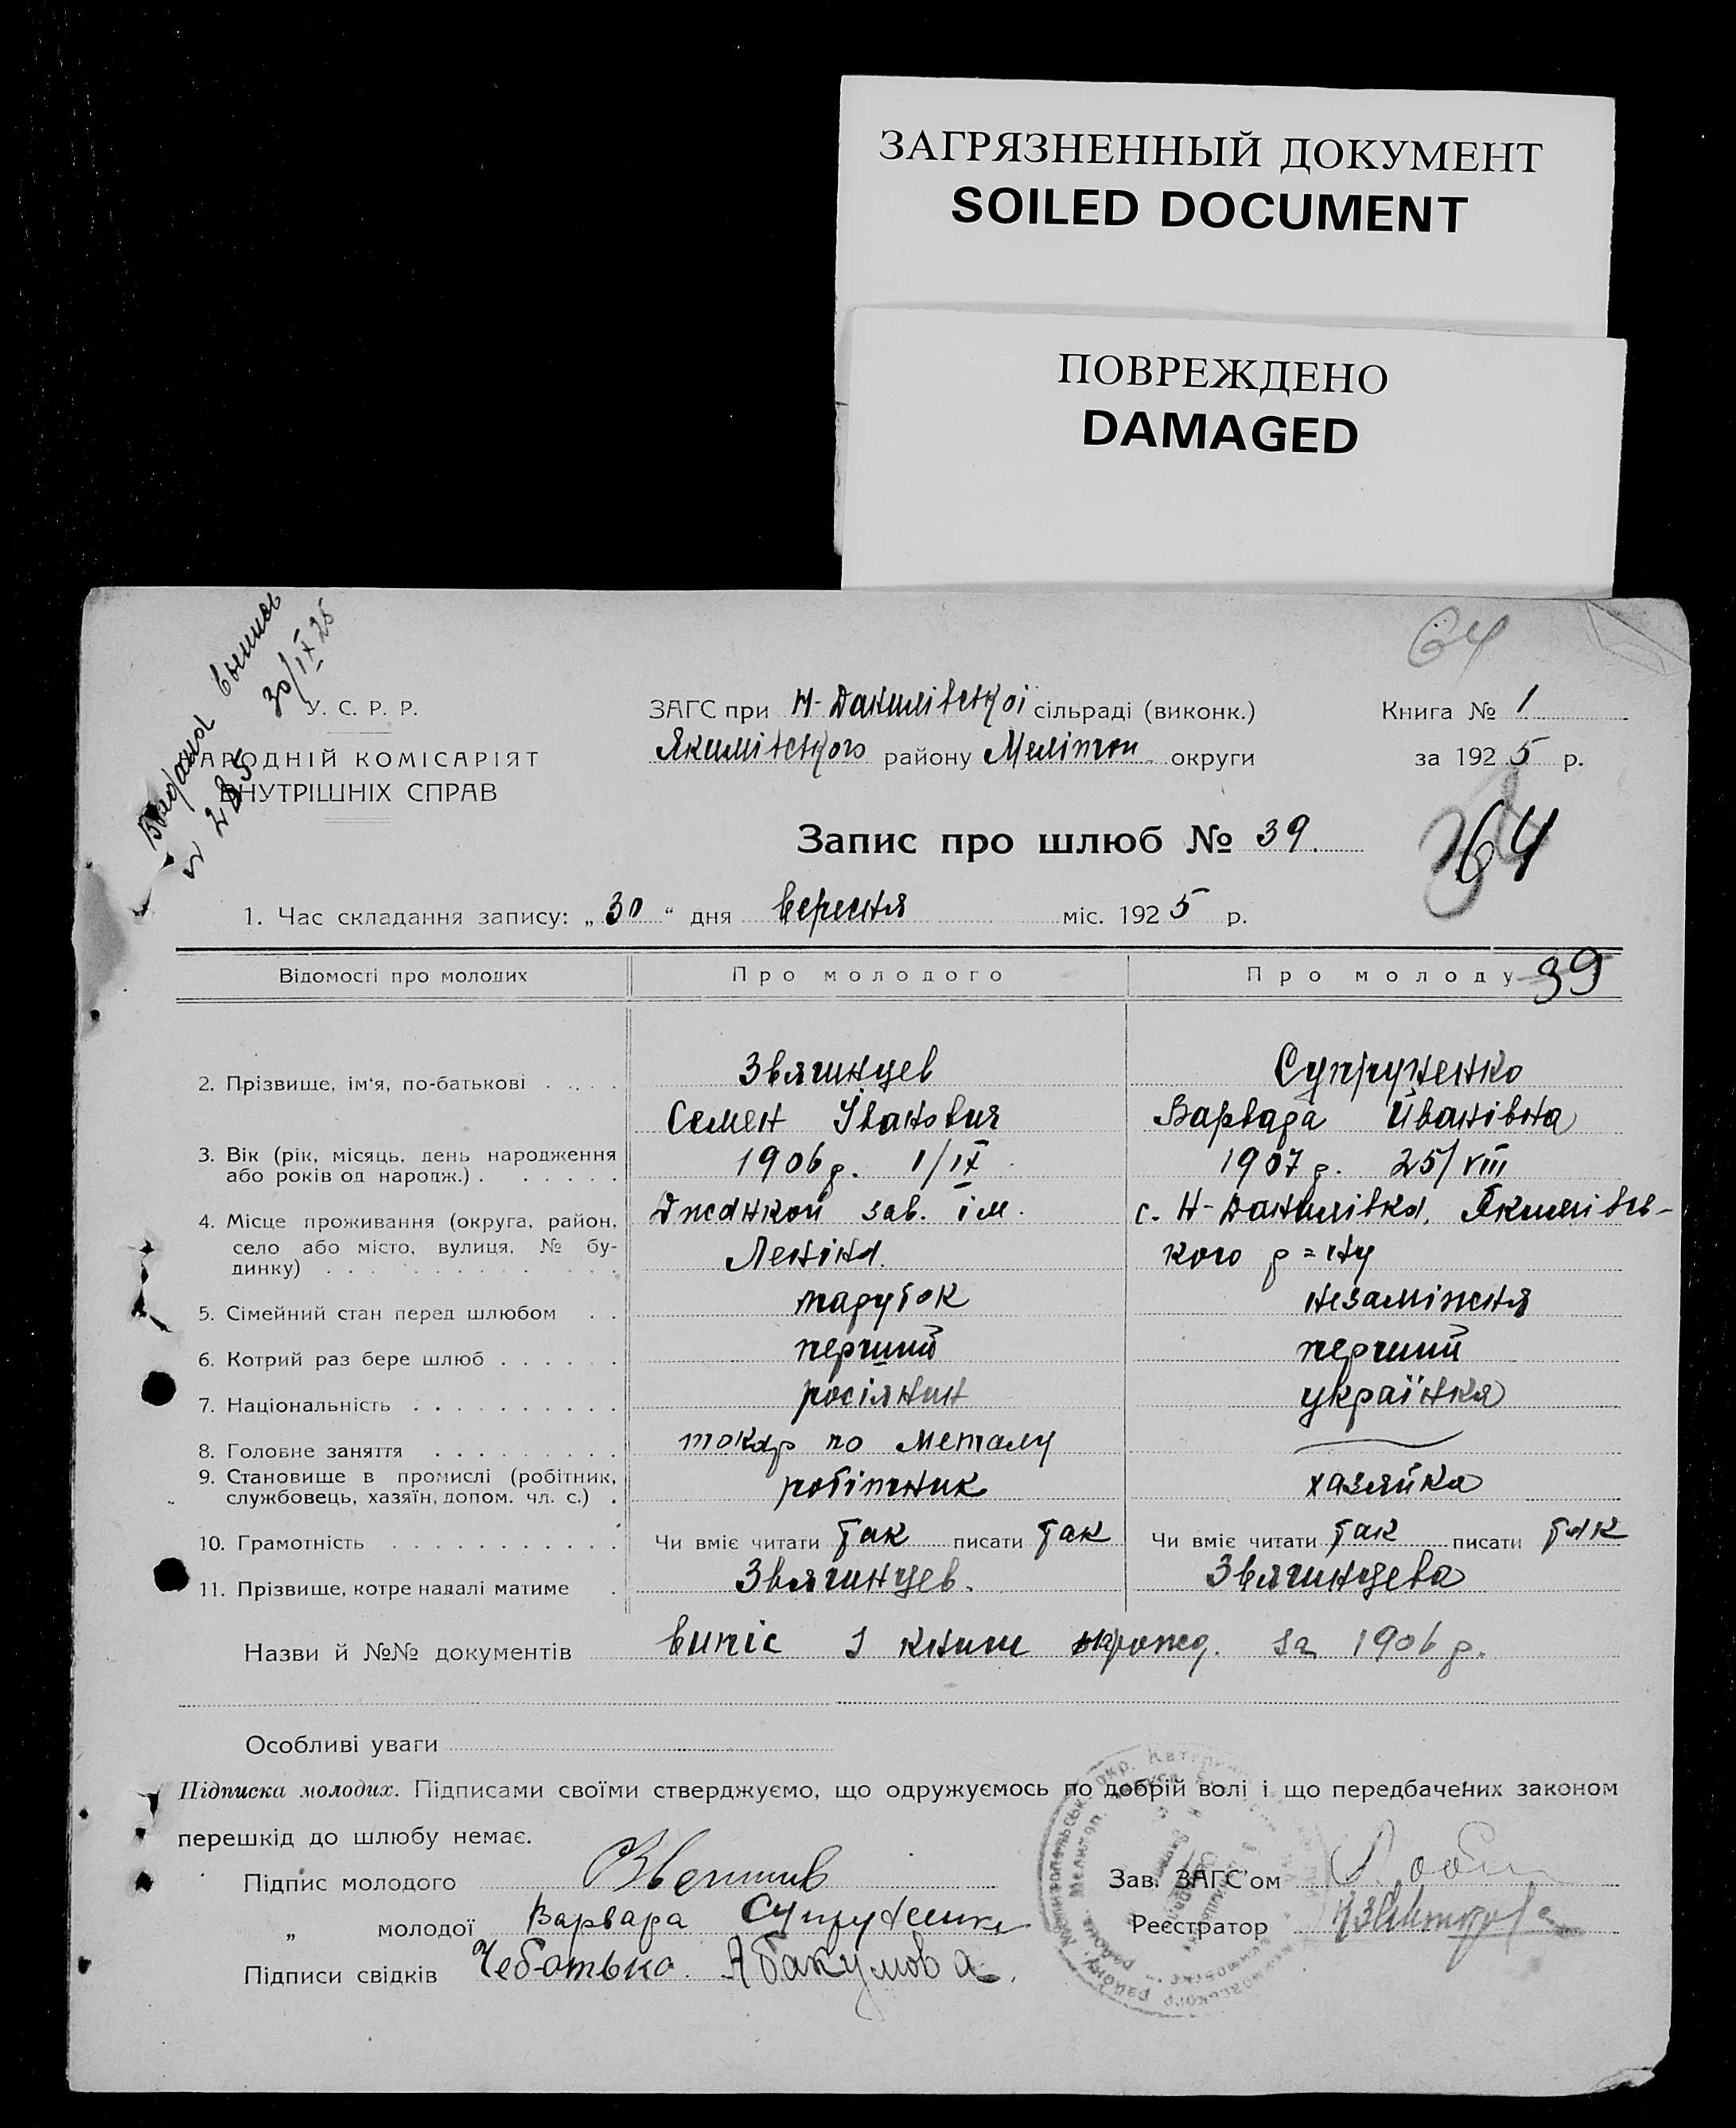 ЗАГРЯЗНЕННЫЙ ДОКУМЕНТ
SOILED DOCUMENT
ПОВРЕЖДЕНО
DAMAGED
64
Выдана выпись
№ 285 30/IX 25
У. С. Р. Р.
НАРОДНІЙ КОМІСАРІЯТ
ВНУТРІШНІХ СПРАВ
ЗАГС при Н-Данилівській сільраді (виконк.)
Якимівського району Меліտоп. округи
Книга № 1
за 1925 р.
Запис про шлюб № 39.
64
1. Час складання запису: „30“ дня вересня міс. 1925 р.
Відомості про молодих Про молодого Про молоду 39
2. Прізвище, ім'я, по-батькові Звягинцев Супруненко
Семен Іванович Варвара Йванівна
3. Вік (рік, місяць, день народження або років од народж.) 1906 р. 1/IX 1907 р. 25/VIII
4. Місце проживання (округа, район, Джанкой зав. ім. с. Н-Данилівка, Якимівсь-
село або місто, вулиця, № бу-
динку) Леніна. кого р=ну
5. Сімейний стан перед шлюбом парубок незаміжня
6. Котрий раз бере шлюб перший перший
7. Національність росіянин українка
8. Головне заняття токар по металу
9. Становище в промислі (робітник,
службовець, хазяїн, допом. чл. с.) робітник хазяйка
10. Грамотність Чи вміє читати так писати так Чи вміє читати так писати так
11. Прізвище, котре надалі матиме Звягинцев. Звягинцева
Назви й №№ документів випіс з книги нарожд. за 1906 р.
Особливі уваги
Підписка молодих. Підписами своїми стверджуємо, що одружуємось по добрій волі і що передбачених законом
перешкід до шлюбу немає.
Підпис молодого
Зав. ЗАГС'ом
„ молодої Варвара Супруненко
Реєстратор
Підписи свідків Чеботько. Абакумова.